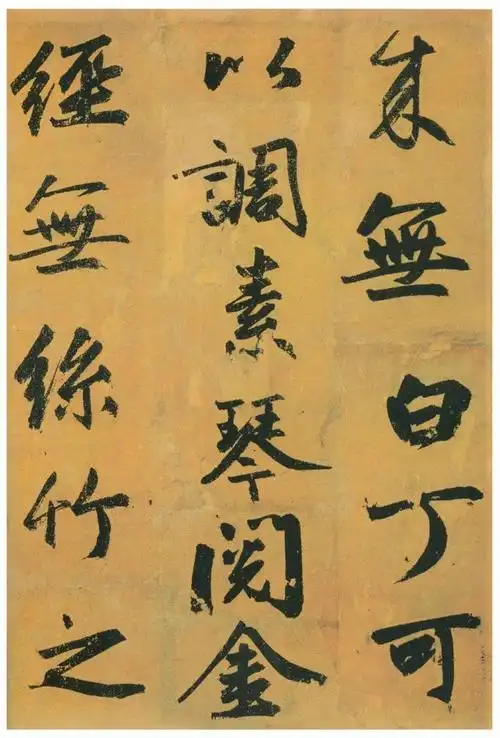 來無白丁可
以調素琴閱金
經無絲竹之